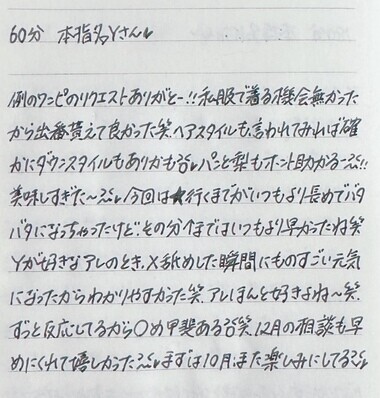 60分 本指名Yさん
例のワンピのリクエストありがとー!!私服で着る機会無かった
から出番貰えて良かった笑 ヘアスタイルも、言われてみれば確
かにダウンスタイルもありかも パンと梨もホント助かる!!
美味しすぎた〜 今回は★行くまでがいつもより長めでバタ
バタになっちゃったけど、その分↑まではいつもより早かったね笑
Yが好きなアレのとき、X舐めした瞬間にものすごい元気
になったからわかりやすかった笑 アレほんと好きよね〜笑
ずっと反応してるから〇め甲斐ある笑 12月の相談も早
めにくれて嬉しかった まずは10月、また楽しみにしてる